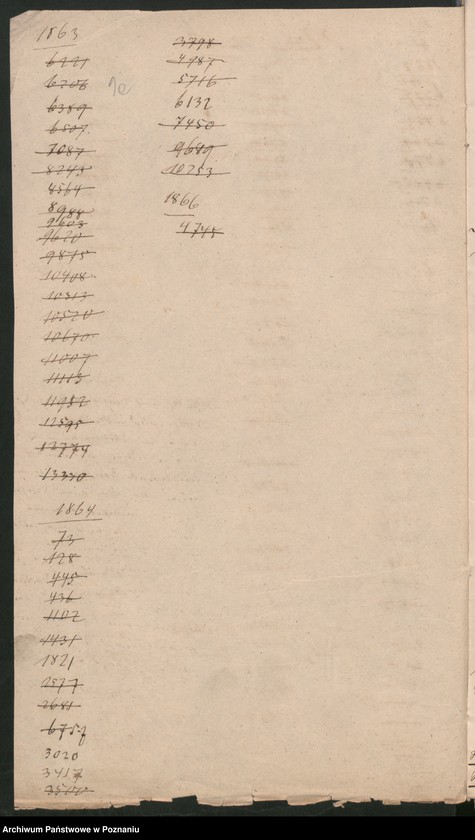 1863
6221
6206
6389
6507
7087
8245
8564
8988
9603
9620
9875
10408
10313
10520
10670
11007
11113
11982
12595
12774
13330
1864
73
128
445
436
1102
1431
1821
2577
2681
3020
3417
3798
4787
5716
6132
7450
9689
10253
1866
4745
Archiwum Państwowe w Poznaniu